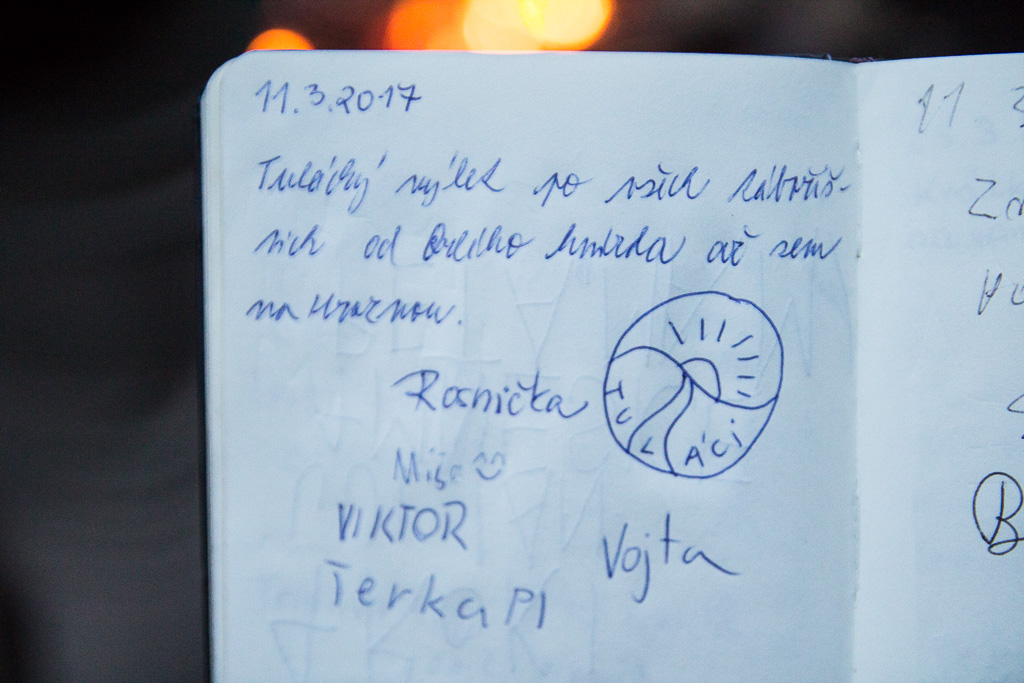 11.3.2017
Tulácký výlet po všich tábořiš-
tích od Orlího hnízda až sem
na Mraznou.
Rosnička
TULÁCI
Míša
VIKTOR
Vojta
TerkaPI
11 3
Za
B